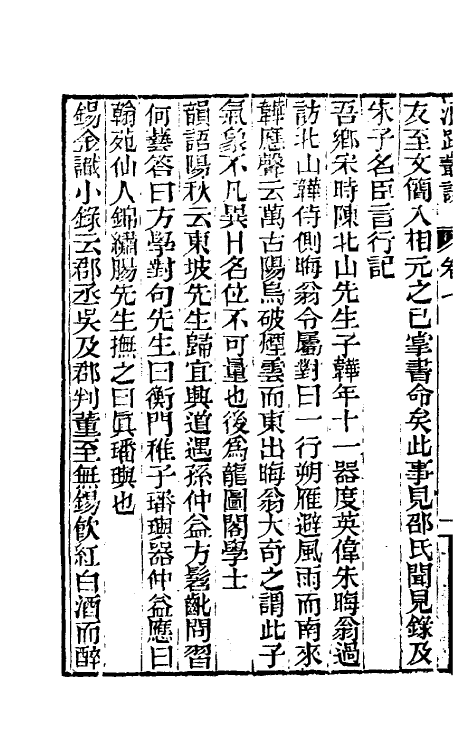 友至文簡入相元之已掌書命矣此事見邵氏聞見錄及
朱子名臣言行記
吾鄉宋時陳北山先生子韡年十一器度英偉朱晦翁過
訪北山韡侍側晦翁令屬對曰一行朔雁避風雨而南來
韡應聲云萬古陽烏破煙雲而東出晦翁大奇之謂此子
氣象不凡異日名位不可量也後爲龍圖閣學士
韻語陽秋云東坡先生歸宜興道遇孫仲益方髫齔問習
何藝答曰方學對句先生曰衡門稚子璠璵器仲益應曰
翰苑仙人錦繡腸先生撫之曰眞璠璵也
錫金識小錄云郡丞吳及郡判董至無錫飮紅白酒而醉